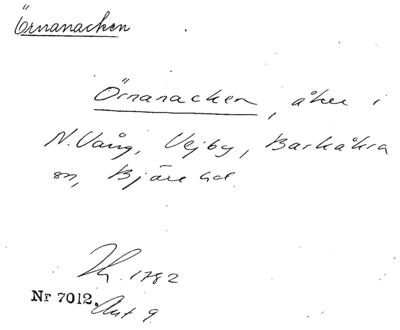 Örnanacken
Örnanacken, åker i
N. Vång, Vejby, Barkåkra
sn, Bjäre hd.
1782
Nr 7012. Akt 9